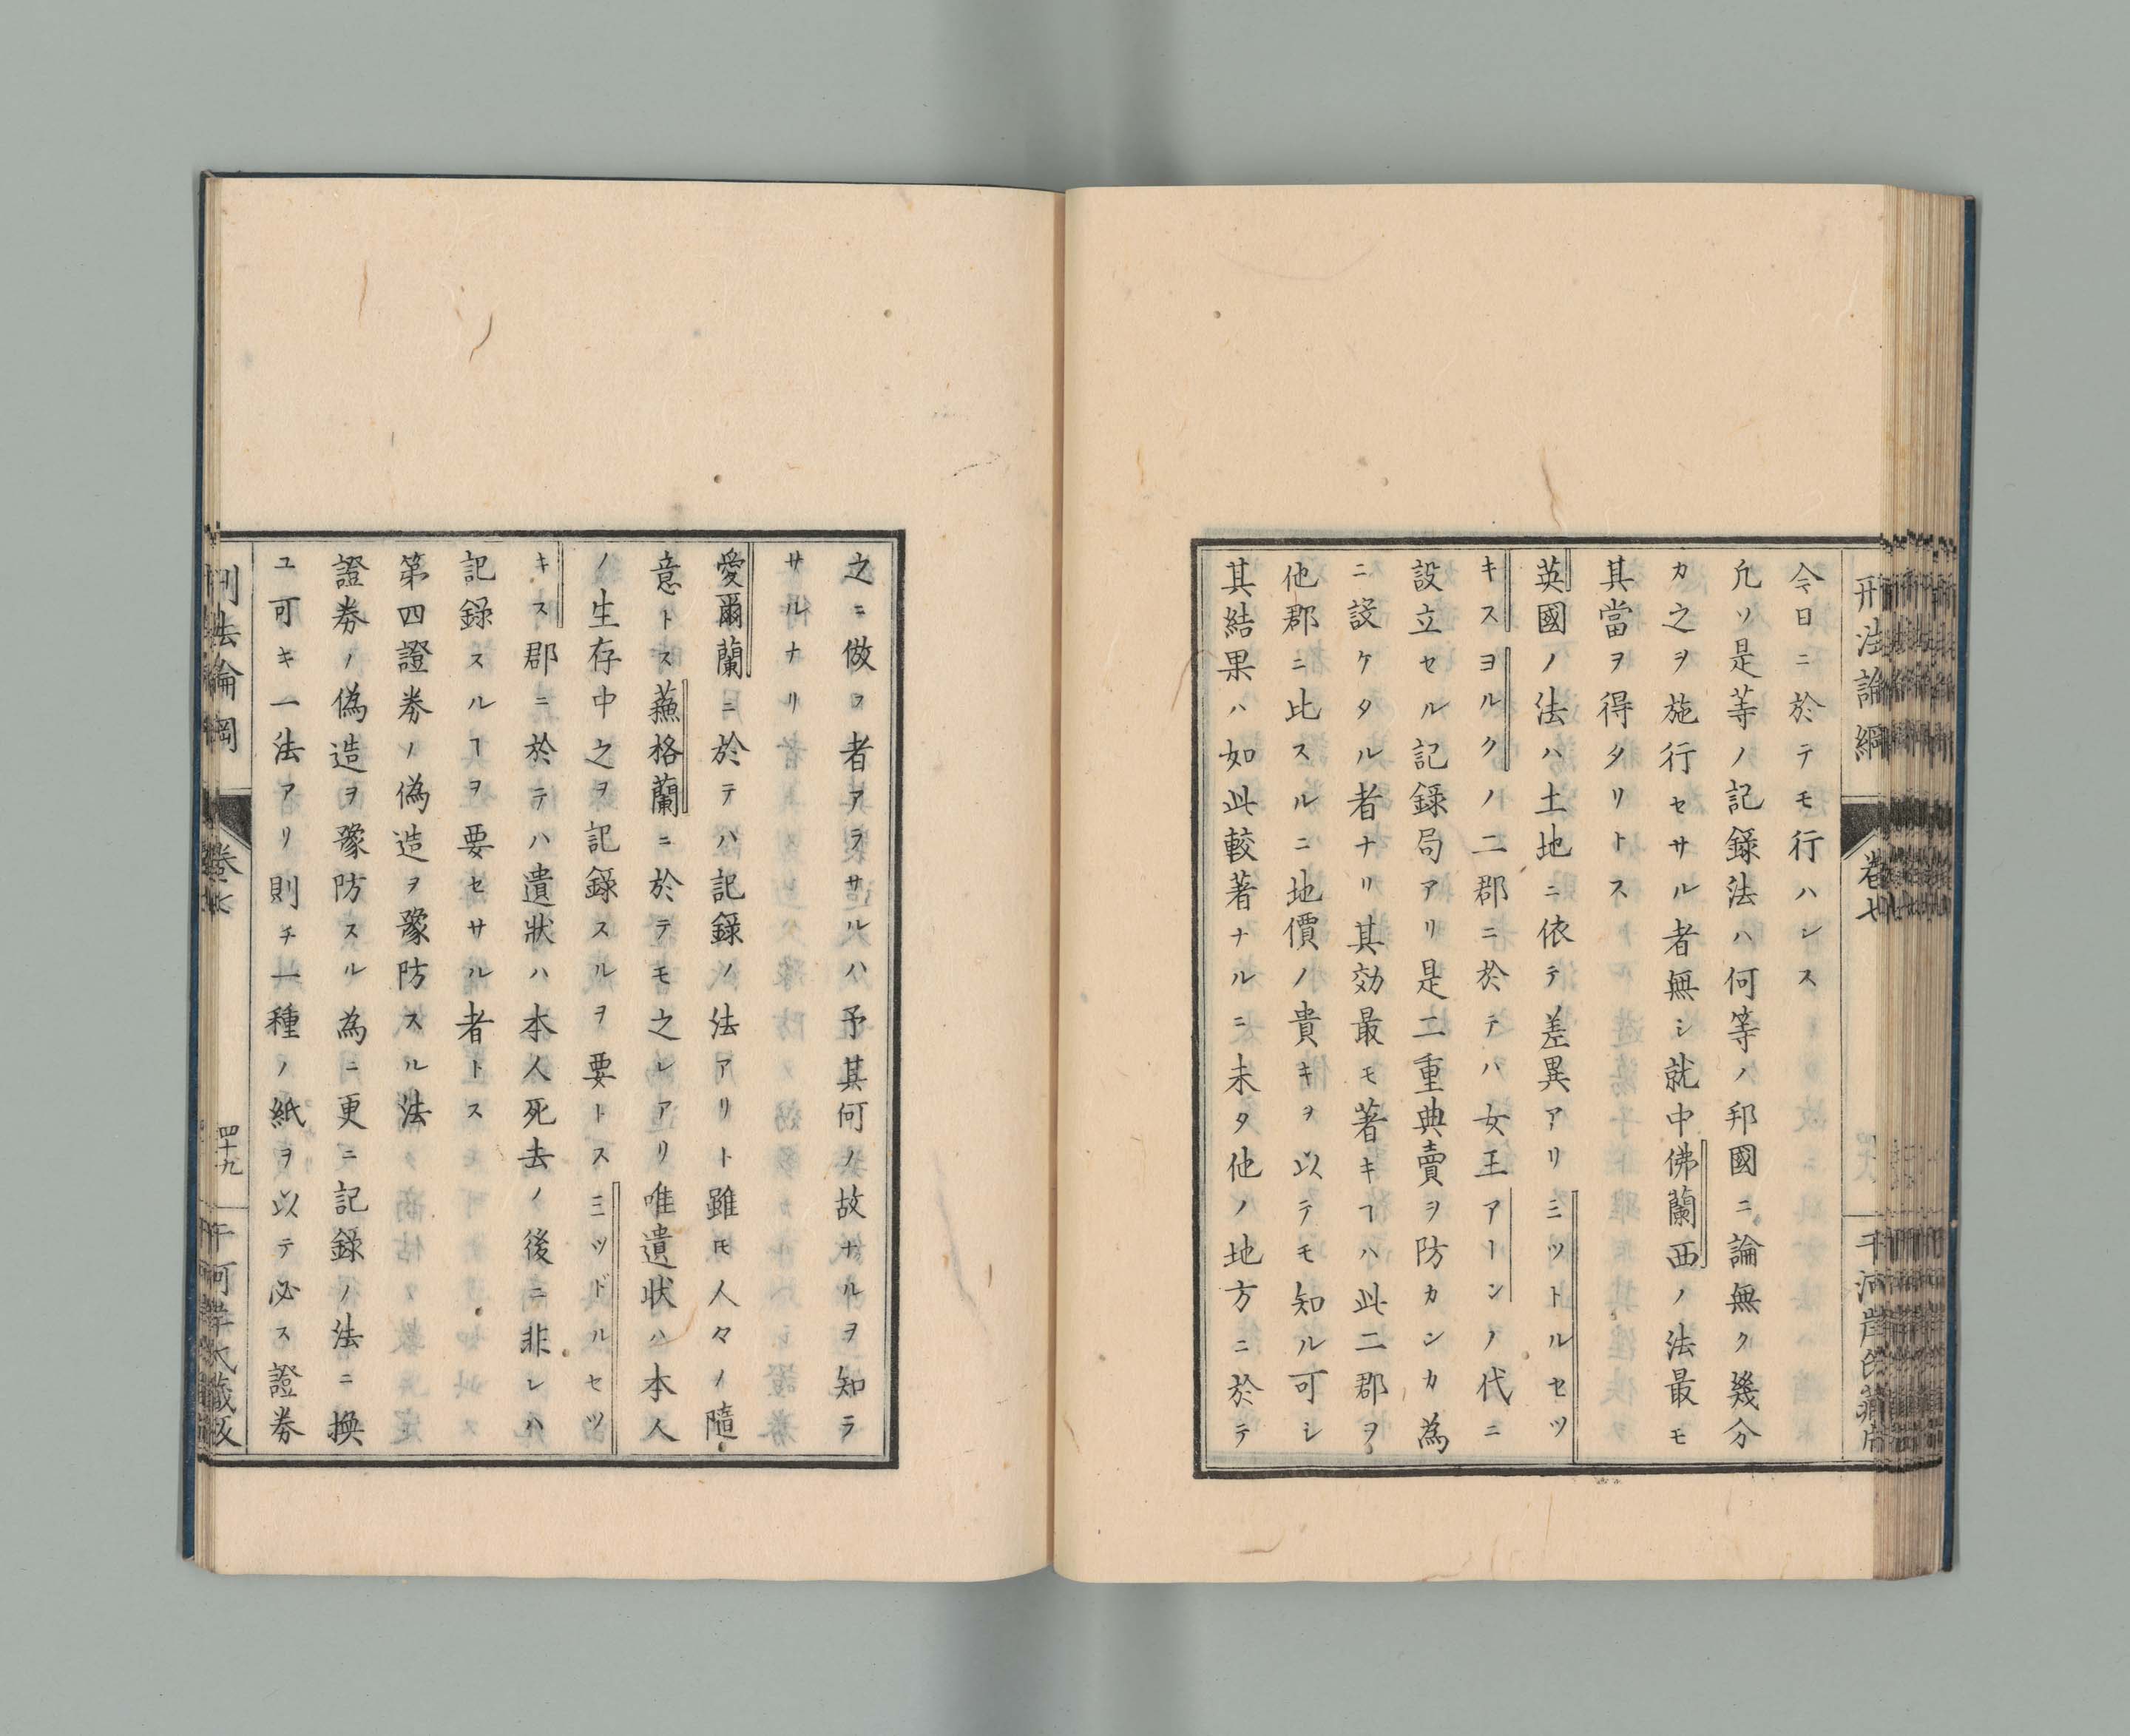 刑法論綱
卷七
今日ニ於テモ行ハシス
凢ソ是等ノ記錄法ハ何等ノ邦國ニ論無ク幾分
カ之ヲ施行セサル者無シ就中佛蘭西ノ法最モ
其當ヲ得タリトス
英國ノ法ハ土地ニ依テ差異アリミツトルセツ
キスヨルクノ二郡ニ於テハ女王アーンノ代ニ
設立セル記錄局アリ是二重典賣ヲ防カンカ為
ニ設ケタル者ナリ其効最モ著キヿハ此二郡ヲ
他郡ニ比スルニ地價ノ貴キヲ以テモ知ル可シ
其結果ハ如此較著ナルニ未タ他ノ地方ニ於テ
之ニ倣フ者アラサルハ予其何ノ故ナルヲ知ラ
サルナリ
愛爾蘭ニ於テハ記錄ノ法アリト雖モ人々ノ隨
意トス蘓格蘭ニ於テモ之レアリ唯遺狀ハ本人
ノ生存中之ヲ記錄スルヲ要トスミツドルセツ
キス郡ニ於テハ遺狀ハ本人死去ノ後ニ非レハ
記錄スルヿヲ要セサル者トス
第四證券ノ偽造ヲ豫防スル法
證券ノ偽造ヲ豫防スル為ニ更ニ記錄ノ法ニ換
ユ可キ一法アリ則チ一種ノ紙ヲ以テ必ス證券
刑法論綱
卷七
四十九